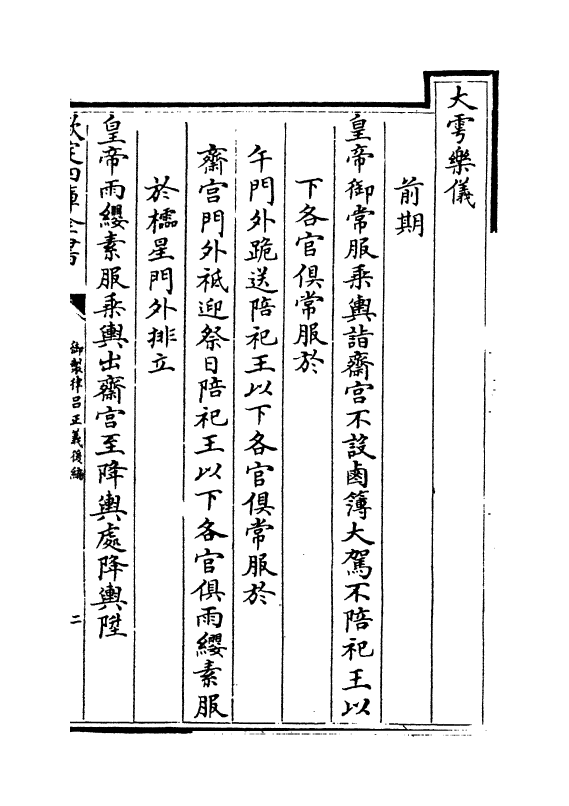 大雩樂儀
前期
皇帝御常服乘輿詣齋宮不設鹵簿大駕不陪祀王以
下各官俱常服於
午門外跪送陪祀王以下各官俱常服於
齋宮門外祗迎祭日陪祀王以下各官俱雨纓素服
於櫺星門外排立
皇帝雨纓素服乘輿出齋宮至降輿處降輿陞
欽定四庫全書
御製律呂正義後編
二